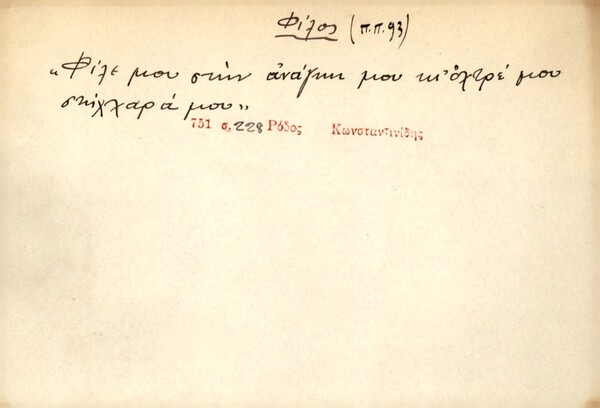 Φίλος (π.π. 93)
«Φίλε μου στὴν ἀνάγκη μου κι' ὀλτρέ μου
στὴχ χαρά μου»
751 σ. 228 Ρόδος Κωνσταντινίδης